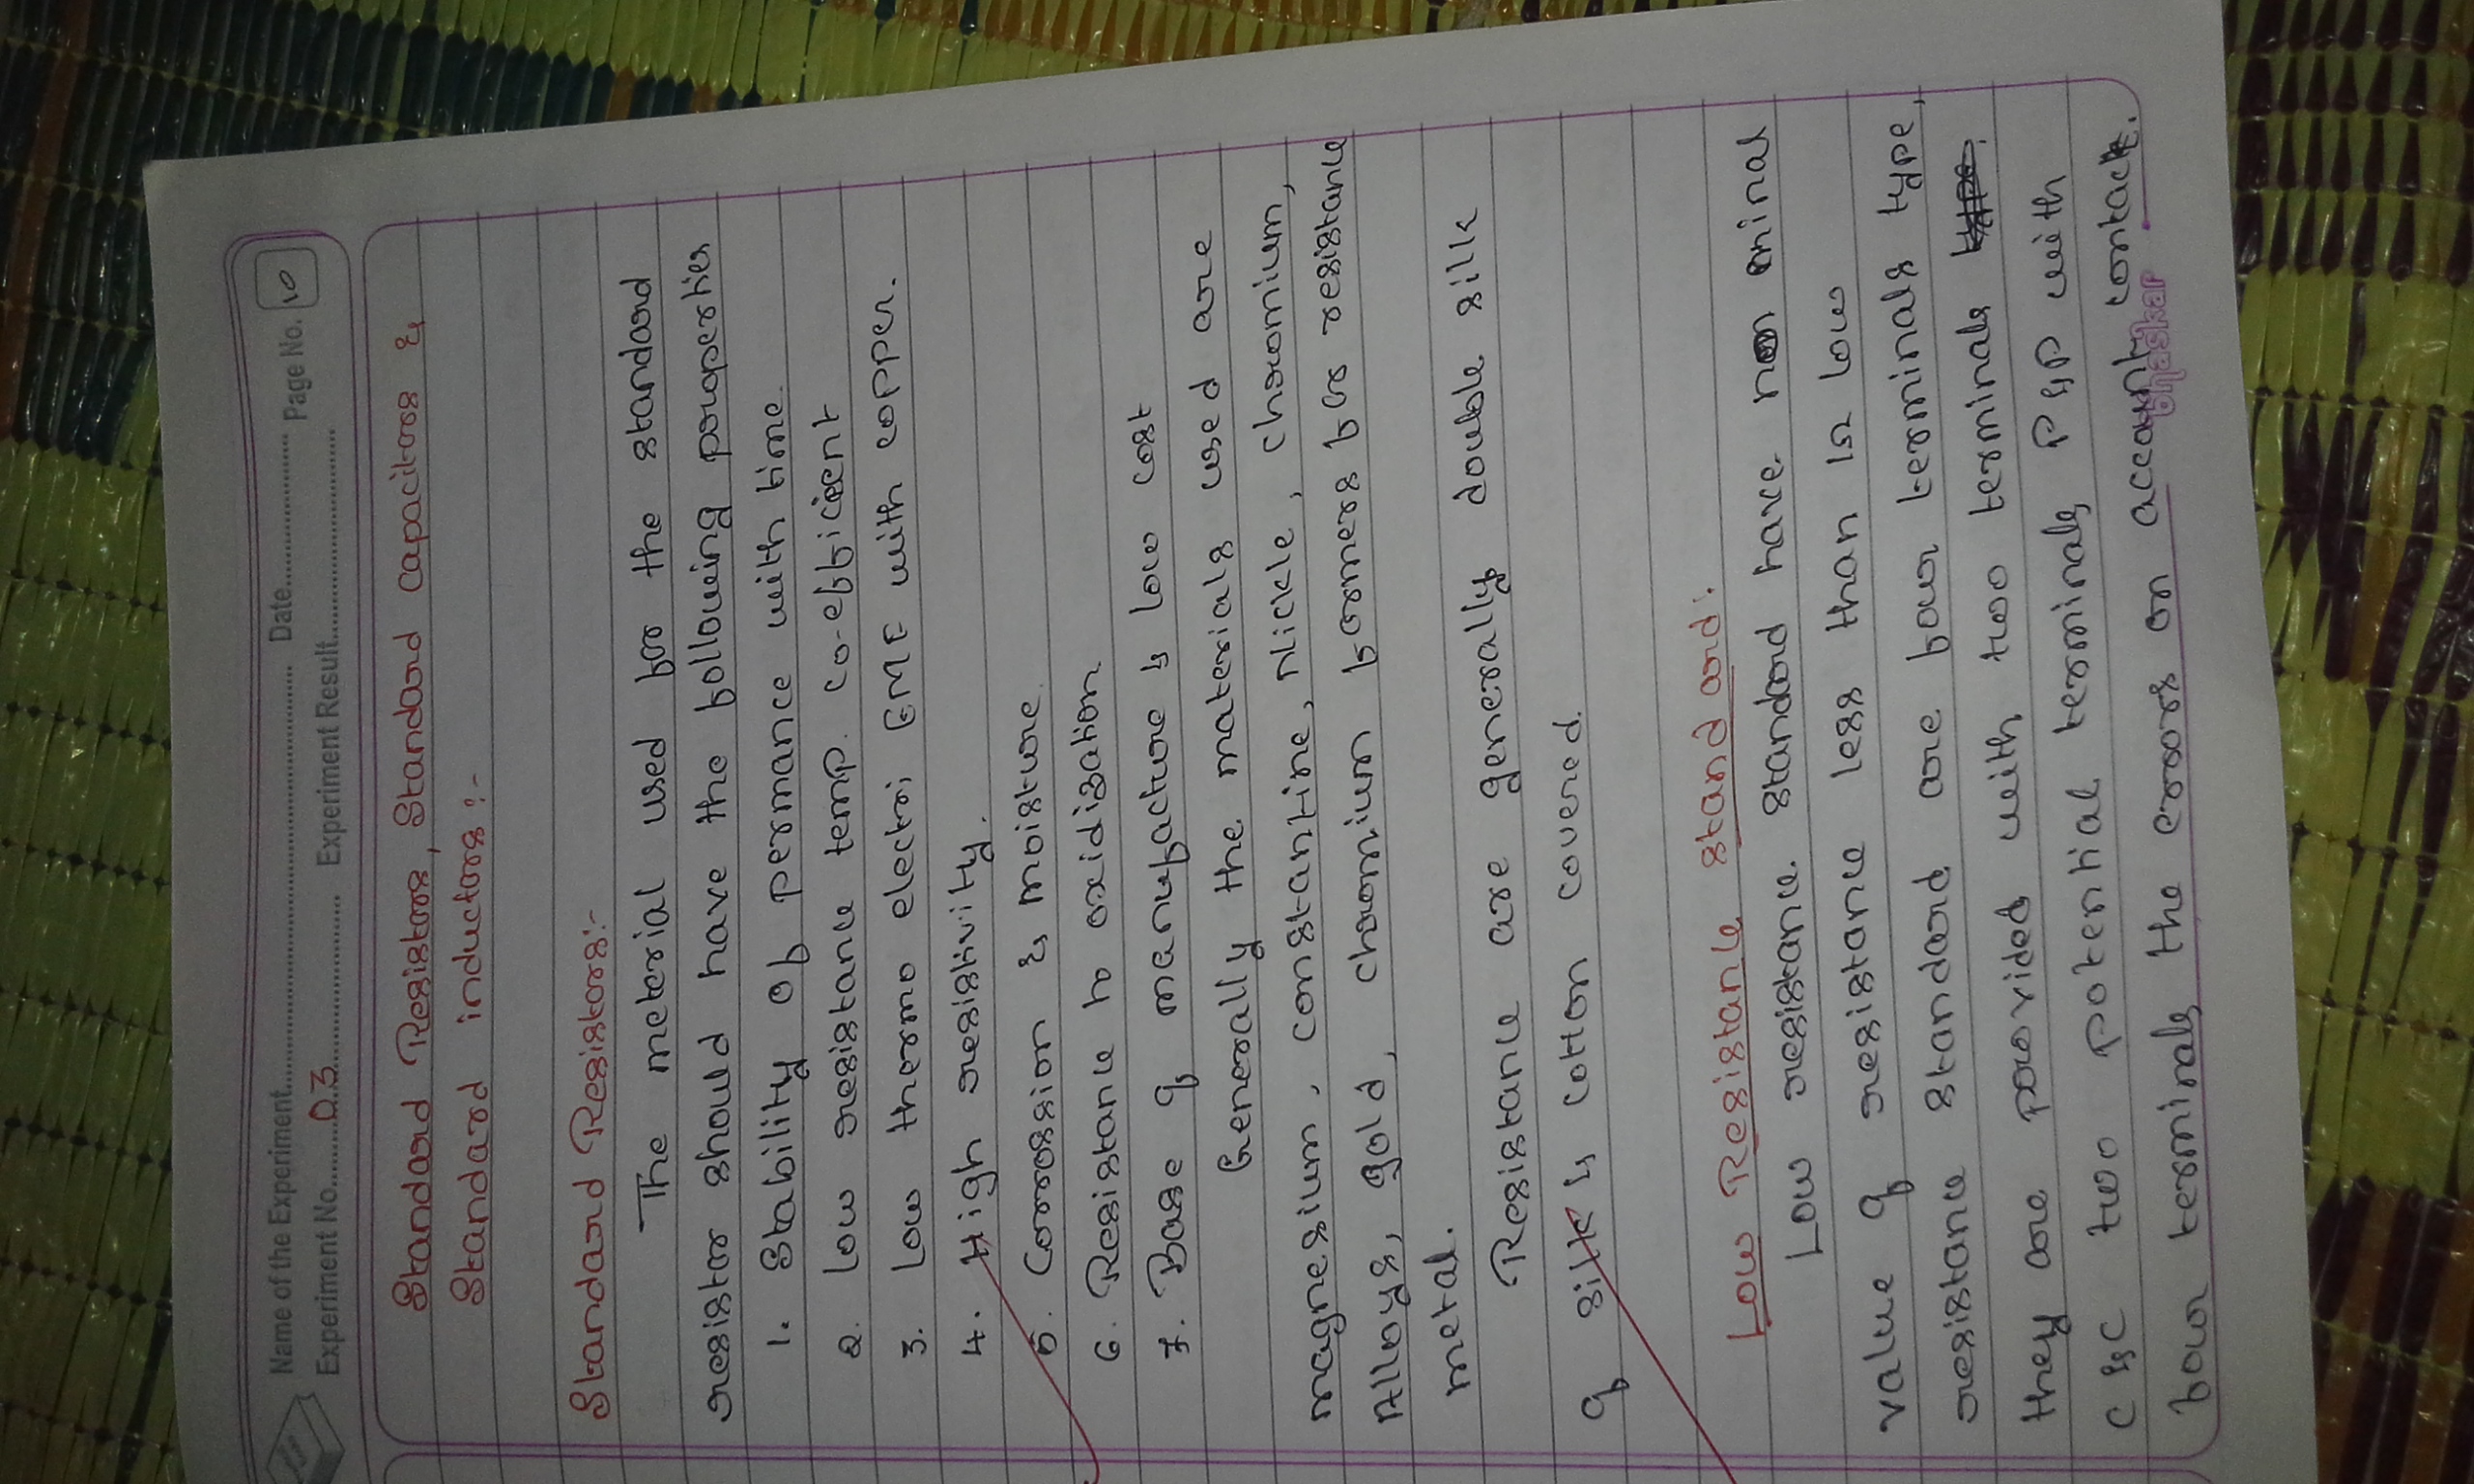 Name of the Experiment.................... Date............ Page No. 10
Experiment No. 03 Experiment Result....................
Standard Resistors, Standard capacitors &
Standard inductors :-
Standard Resistors:-
The meterial used for the standard
resistor should have the following properties
1. Stability of permance with time.
2. low resistance temp. co-efficient
3. Low thermo electri EMF with copper.
4. High resistivity.
5. Corrossion & moisture.
6. Resistance to oxidization
7. Base of manufacture & low cost
Generally the materials used are
magnesium, constantine, Nickle, chromium,
Alloys, gold, chromium formers for resistance
metal.
Resistance are generally double silk
of silk & cotton covered.
Low Resistance standard:
Low resistance standard have no minal
value of resistance less than 1Ω low
resistance standard are four terminals type,
they are provided with two terminals
C & C two potential terminals P & P with
four terminals the errors on account contact.
Bhaskar